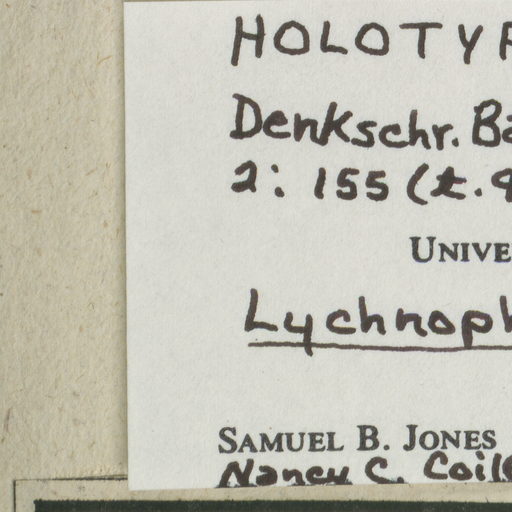 HOLOTYP
Denkschr. Ba
2: 155 (t. 9
UNIVE
Lychnoph
SAMUEL B. JONES
Nancy C. Coile